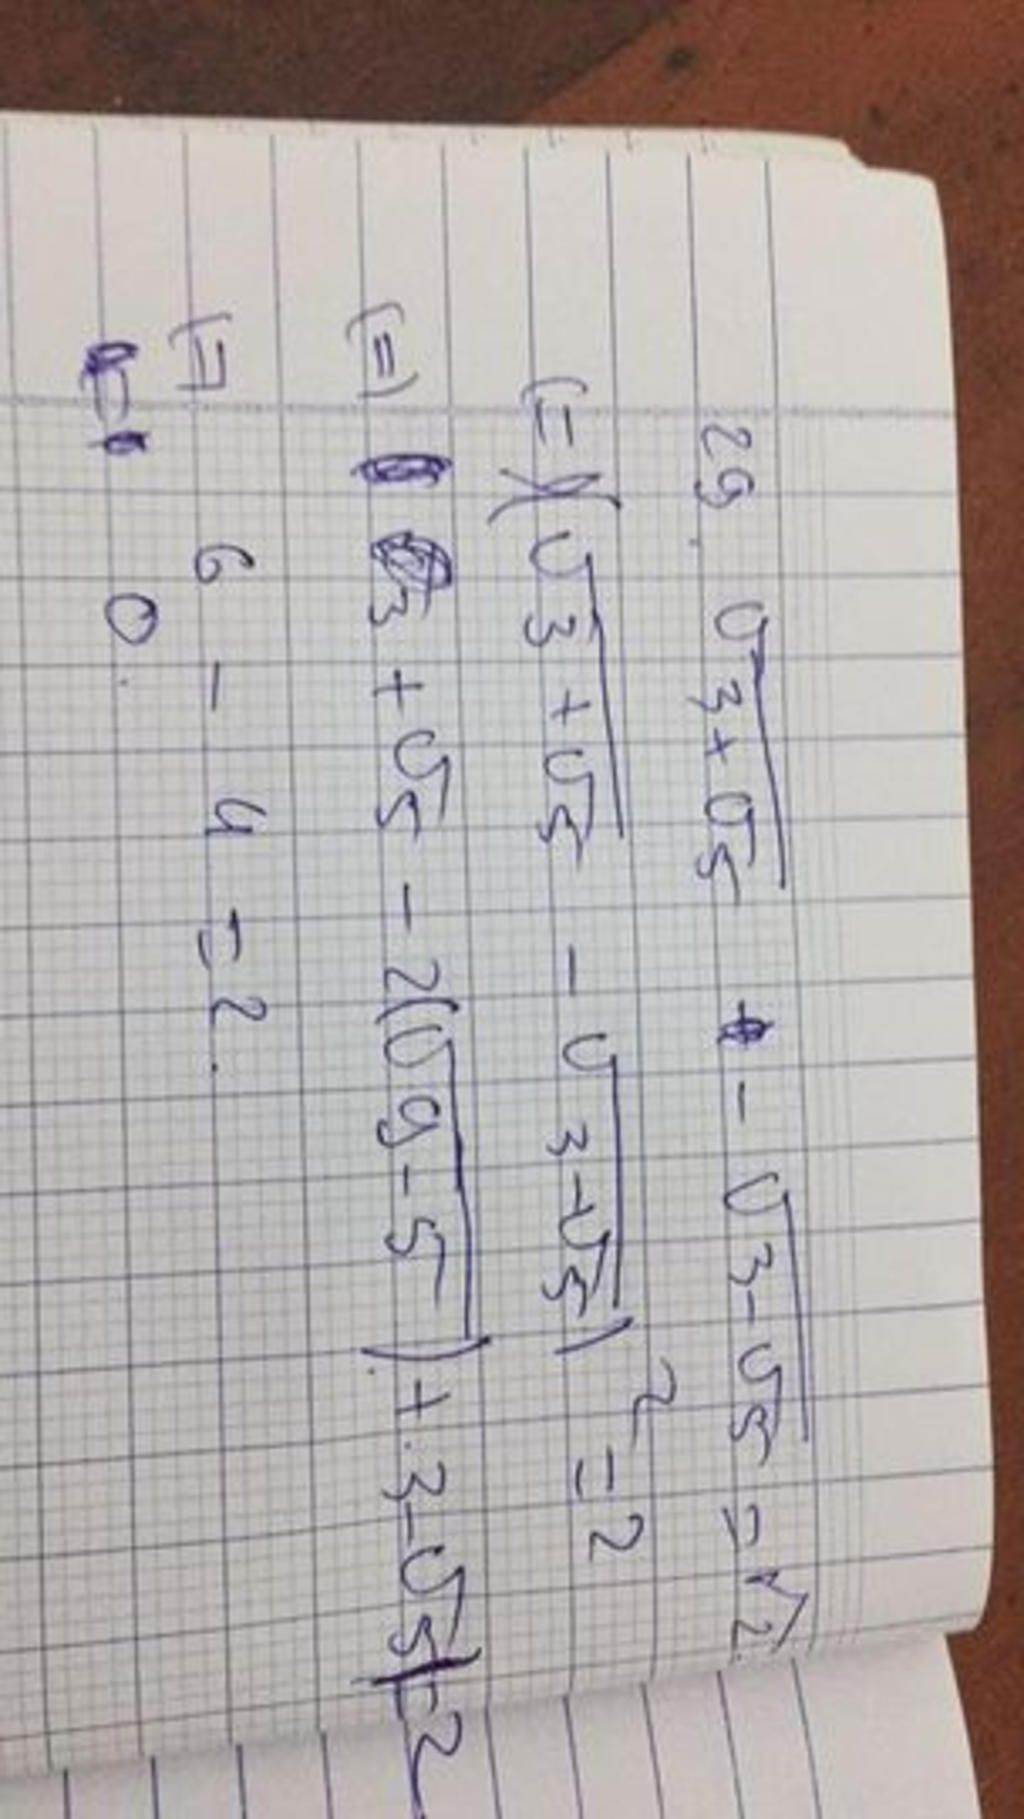 29. √3+√5 - √3-√5 = √2
(=) (√3+√5 - √3-√5)² = 2
(=) 3+√5 - 2(√9-5) + 3-√5 = 2
(=) 6 - 4 = 2.
0.